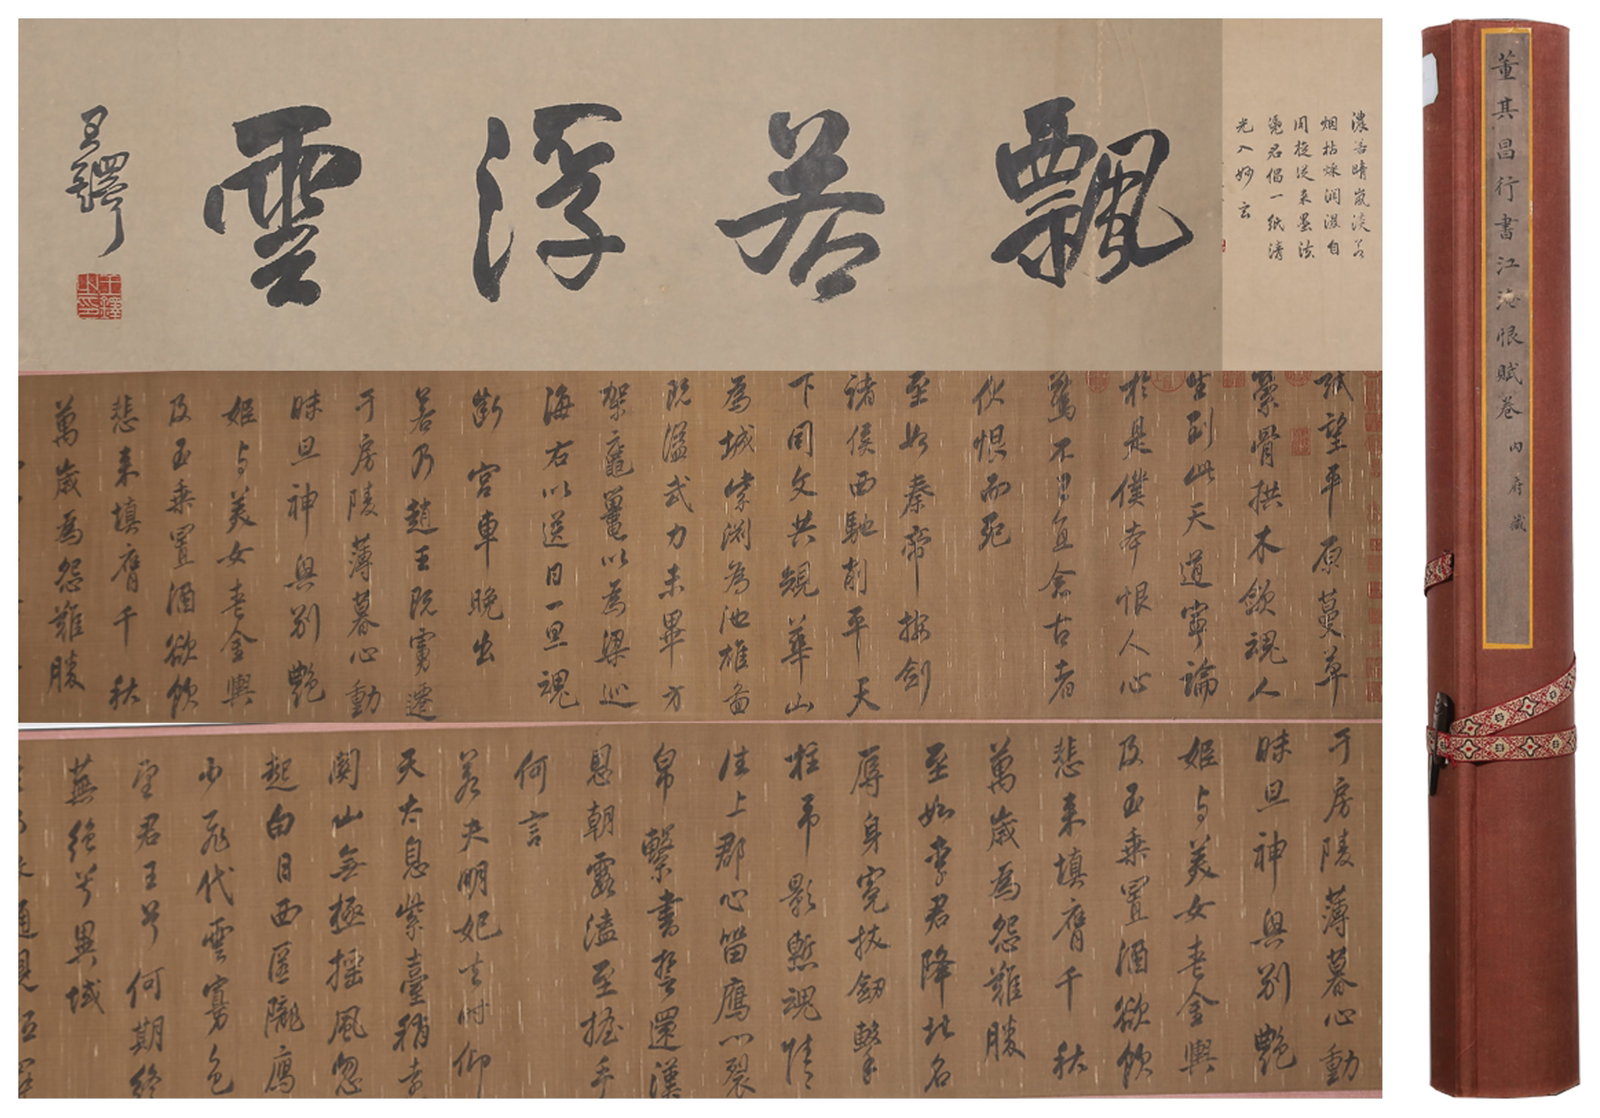 飄若浮雲
王鐸
濃若晴嵐淡若
烟枯株潤濕自
周旋從來墨法
君個一紙清
光入妙玄
董其昌行書江淹恨賦卷 內府藏
試望平原蔓草
縈骨拱木斂魂人
生到此天道寧論
於是僕本恨人心
驚不已直念古者
伏恨而死
至如秦帝按劍
諸侯西馳削平天
下同文共規華山
為城紫淵為池雄圖
既溢武力未畢方
架黿鼉以為梁巡
海右以送日一旦魂
斷宮車晚出
若乃趙王既虜遷
于房陵薄暮心動
昧旦神興別艷
姬与美女喪金輿
及玉乘置酒欲飲
悲來填膺千秋
萬歲為怨難勝
于房陵薄暮心動
昧旦神興別艷
姬与美女喪金輿
及玉乘置酒欲飲
悲來填膺千秋
萬歲為怨難勝
至如李君降北名
辱身冤拔劍擊
柱吊影慙魂情
往上郡心留鴈門裂
帛繫書誓還漢
恩朝露溘至握手
何言
若夫明妃去時仰
天太息紫臺稍遠
關山無極搖風忽
起白日西匿隴鴈
少飛代雲寡色
望君王兮何期終
蕪絕兮異域